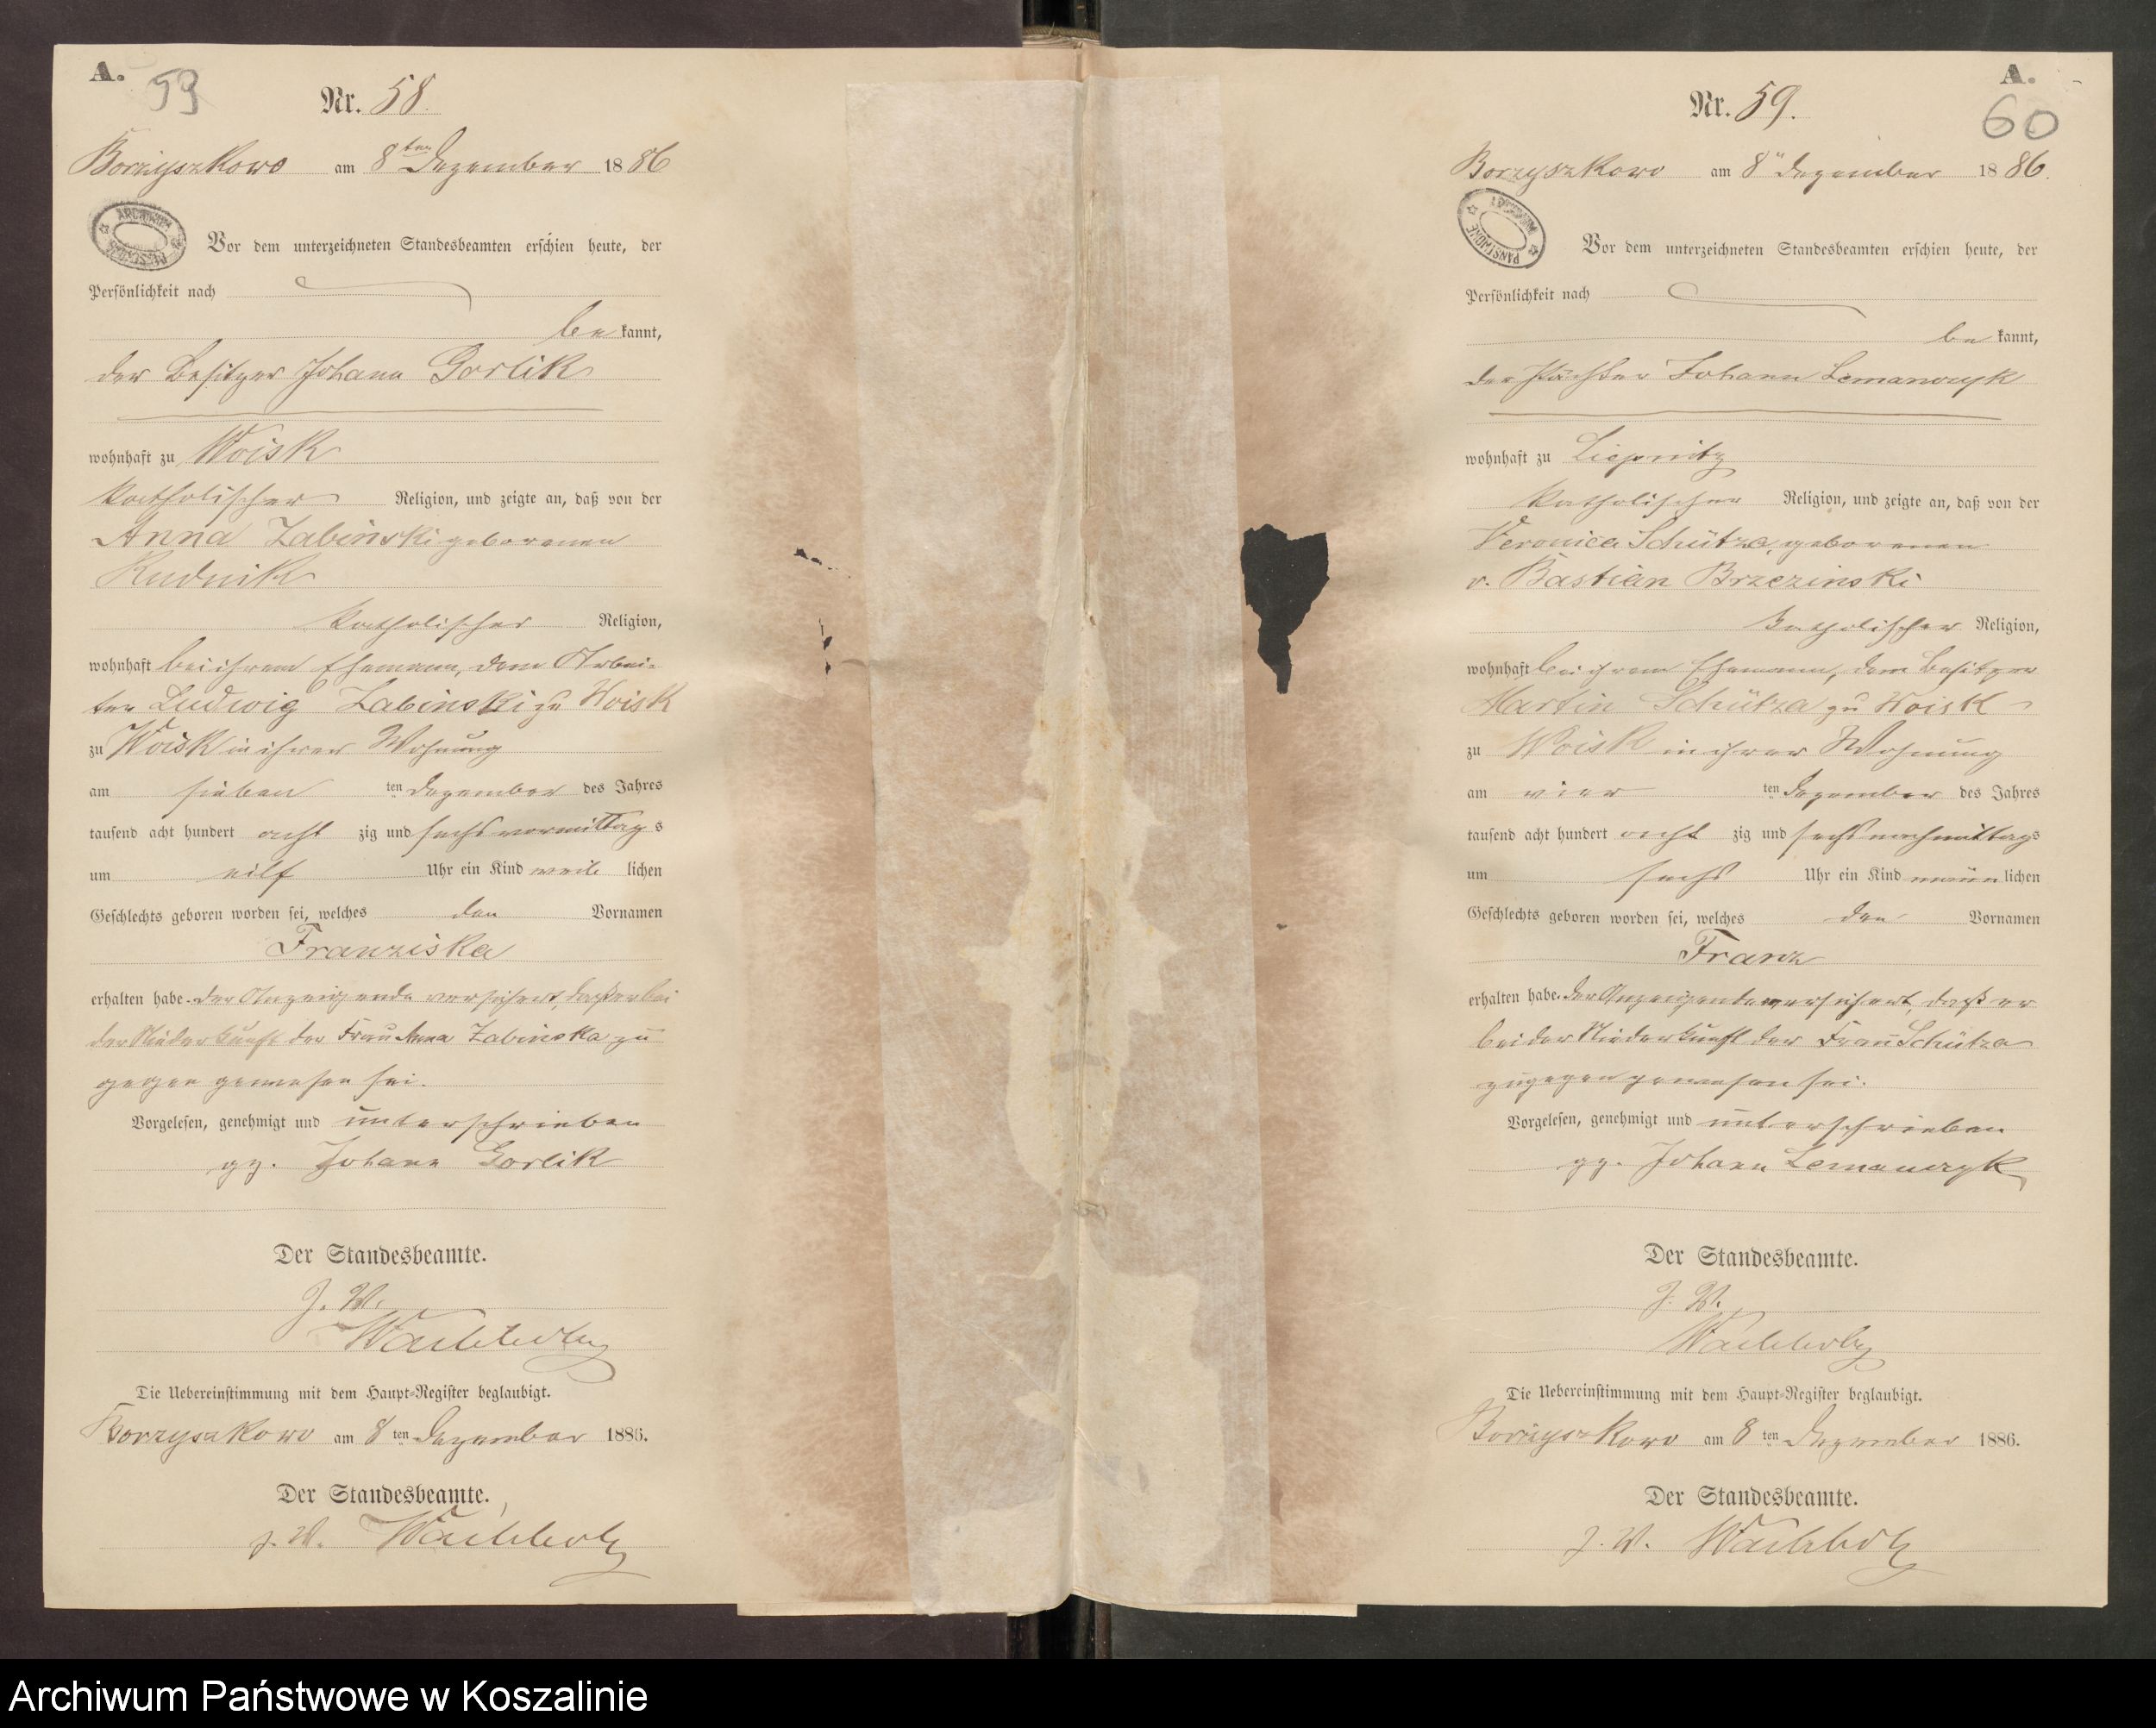 A.
59
Nr. 58.
Borzyszkowo am 8ten Dezember 1886
ARCHIWUM
Vor dem unterzeichneten Standesbeamten erschien heute, der
Persönlichkeit nach
be kannt,
der Besitzer Johann Gorlik
wohnhaft zu Woisk
katholischer Religion, und zeigte an, daß von der
Anna Zabinski geborenen
Rudnik
katholischer Religion,
wohnhaft bei ihrem Ehemann, dem Arbei-
ter Ludwig Zabinski zu Woisk
zu Woisk in ihrer Wohnung
am sieben ten Dezember des Jahres
tausend acht hundert acht zig und sechs vormittag s
um eilf Uhr ein Kind weib lichen
Geschlechts geboren worden sei, welches den Vornamen
Franziska
erhalten habe. Der Anzeigende versichert, daß er bei
der Niederkunft der Frau Anna Zabinska zu
gegen gewesen sei.
Vorgelesen, genehmigt und unterschrieben
gz. Johann Gorlik
Der Standesbeamte.
J. V.
Die Uebereinstimmung mit dem Haupt-Register beglaubigt.
Borzyszkowo am 8 ten Dezember 1886.
Der Standesbeamte.
J. V.
A.
60
Nr. 59.
Borzyszkowo am 8" Dezember 1886.
ARCHIWUM PAŃSTWOWE
Vor dem unterzeichneten Standesbeamten erschien heute, der
Persönlichkeit nach
be kannt,
der Pächter Johann Lemanczyk
wohnhaft zu Liepnitz
katholischer Religion, und zeigte an, daß von der
Veronica Schütza, geborenen
v. Bastian Brzezinski
katholischer Religion,
wohnhaft bei ihrem Ehemann, dem Besitzer
Martin Schütza zu Woisk
zu Woisk in ihrer Wohnung
am vier ten Dezember des Jahres
tausend acht hundert acht zig und sechs nachmittags
um sechs Uhr ein Kind männ lichen
Geschlechts geboren worden sei, welches den Vornamen
Franz
erhalten habe. Der Anzeigende versichert, daß er
bei der Niederkunft der Frau Schütza
zugegen gewesen sei.
Vorgelesen, genehmigt und unterschrieben
gz. Johann Lemanczyk
Der Standesbeamte.
J. V.
Die Uebereinstimmung mit dem Haupt-Register beglaubigt.
Borzyszkowo am 8 ten Dezember 1886.
Der Standesbeamte.
J. V.
Archiwum Państwowe w Koszalinie